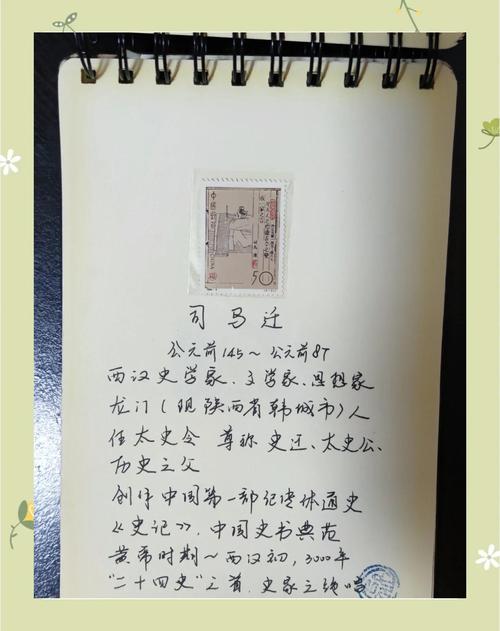 中国邮政
50
司马迁
公元前145～公元前87
西汉史学家、文学家、思想家
龙门(现陕西省韩城市)人
任太史令 尊称 史迁、太史公、
历史之父
创作中国第一部纪传体通史
《史记》,中国史书典范
黄帝时期～西汉初,3000年
"二十四史"之首,史家之绝唱